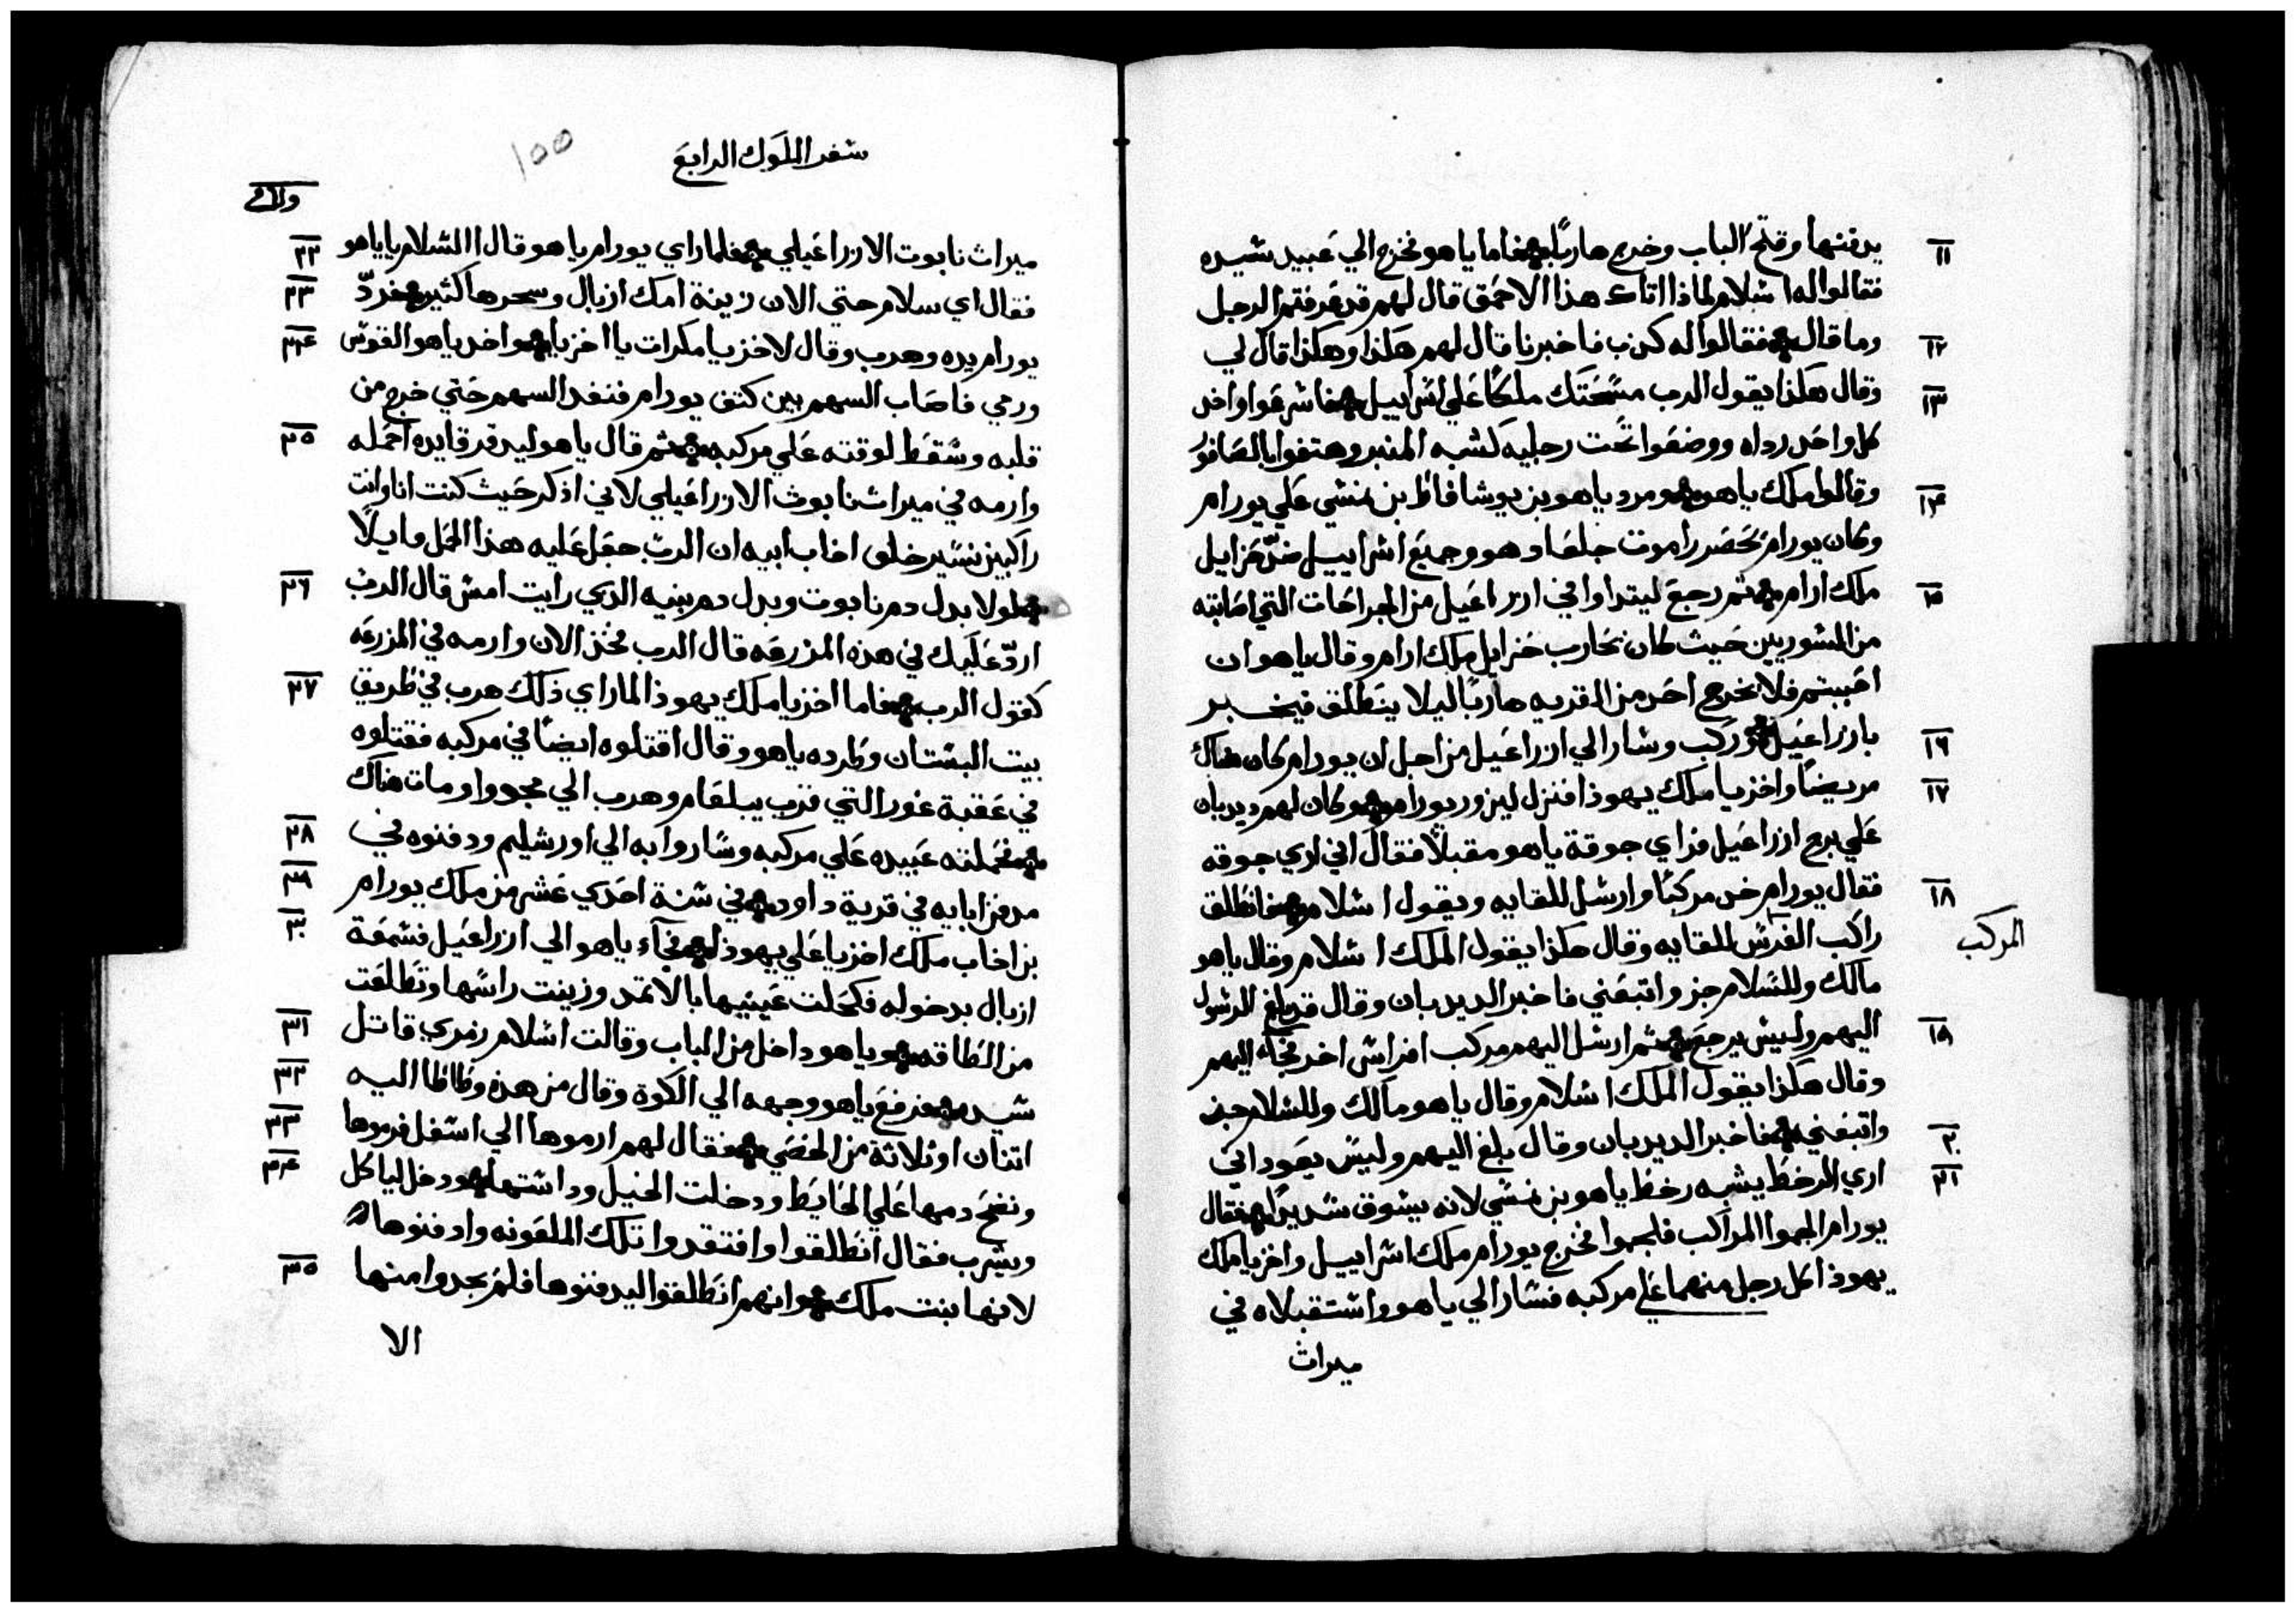 ١١ يدفنها وفتح الباب وخرج هاربًا فاما ياهو فخرج الي عبيد سيده
فقالوا له اسلام لماذا اتاك هذا الاحمق قال لهم قد عرفتم الرجل
١٢ وما قال فقالوا له كذب فاخبرنا قال لهم هكذا وهكذا قال لي
١٣ وقال هكذا يقول الرب مسحتك ملكًا علي اسراييل فاسرعوا واخد
كل واحد رداه ووضعوا تحت رجليه كشبه المنبر وهتفوا بالصافور
١٤ وقالوا ملك ياهو ومرد ياهو بن يوشافاط بن نمشي علي يورام
وكان يورام يحضر راموت جلعاد هو وجميع اسراييل ضد حزايل
١٥ ملك ارام ثم رجع ليتداوا في ازراعيل من الجراحات التي اصابته
من السوريين حيث كان يحارب حزايل ملك ارام وقال ياهو ان
احببتم فلا يخرج احد من القريه هاربًا ليلا ينطلق فيخبر
١٦ بازراعيل وركب وسار الي ازراعيل من اجل ان يورام كان هناك
١٧ مريضًا واخزيا ملك يهوذا فنزل ليزور يورام وكان لهم ديدبان
علي برج ازراعيل فراي جوقة ياهو مقبلًا فقال اني اري جوقه
١٨ فقال يورام خد مركبًا وارسل للقايه ويقول اسلام فانطلق
المركب
راكب الفرس للقايه وقال هكذا يقول الملك اسلام وقال ياهو
مالك وللسلام جز واتبعني فاخبر الديدبان وقال قد بلغ الرسول
١٩ اليهم وليس يرجع ثم ارسل اليهم مركب افراس اخر فجاء اليهم
وقال هكذا يقول الملك اسلام وقال ياهو مالك وللسلام جز
٢٠ واتبعني فاخبر الديدبان وقال بلغ اليهم وليس يعود اني
٢١ اري الرخط يشبه رخط ياهو بن نمسي لانه يسوق شديدًا فقال
يورام الجموا المراكب فلجموا فخرج يورام ملك اسراييل واخزيا ملك
يهوذا كل رجل منهما علي مركبه فسارا الي ياهو واستقبلاه في
ميراث
سفر الملوك الرابع
١٥٥
٢٢ ميراث نابوت الازراعيلي فلما راي يورام ياهو قال االسلام يا ياهو
٢٣ فقال اي سلام حتي الان زينة امك ازبال وسحرها كثير فردّ
٢٤ يورام يده وهرب وقال لاخزيا مكرات يا اخزيا واخد ياهو القوس
ورمي فاصاب السهم بين كتف يورام فنفد السهم حتي خرج من
٢٥ قلبه وسقط لوقته علي مركبه ثم قال ياهو لبدقر قايده احمله
وارمه في ميراث نابوث الازراعيلي لاني اذكر حيث كنت انا وانت
راكبين نسير خلف اخاب ابيه ان الربّ جعل عليه هذا الحمل قايلًا
٢٦ لولا بدل دم نابوت وبدل دم بنيه الدي رايت امس قال الرب
اردّ عليك في هذه المزرعه قال الرب فخذ الان وارمه في المزرعه
٢٧ كقول الرب فاما اخزيا ملك يهوذا لما راي ذلك هرب في طريق
بيت البستان وطرده ياهو وقال اقتلوه ايضًا في مركبه فقتلوه
في عقبة غور التي قرب يبلعام وهرب الي مجدوا ومات هناك
٢٨ فحملته عبيده علي مركبه وساروا به الي اورشليم ودفنوه في
٢٩ مدفن ابايه في قرية داود في سنة احدي عشر من ملك يورام
٣٠ بن اخاب ملك اخزيا علي يهوذا فجاء ياهو الي ازراعيل فسمعة
ازبال بدخوله فكحلت عينيها بالاتمد وزينت راسها وتطلعت
٣١ من الطاقه وياهو داخل من الباب وقالت اسلام زمري قاتل
٣٢ سيده فرفع ياهو وجهه الي الكوة وقال من هذه وطاطا اليه
٣٣ اتنان او ثلاثة من الخصي فقال لهم ارموها الي اسفل فرموها
٣٤ ونضح دمها علي الحايط ودخلت الخيل وداستها ودخل لياكل
ويشرب فقال انطلقوا وافتقدوا تلك الملعونه وادفنوها
٣٥ لانها بنت ملك وانهم انطلقوا ليدفنوها فلم يجدوا منها
الا